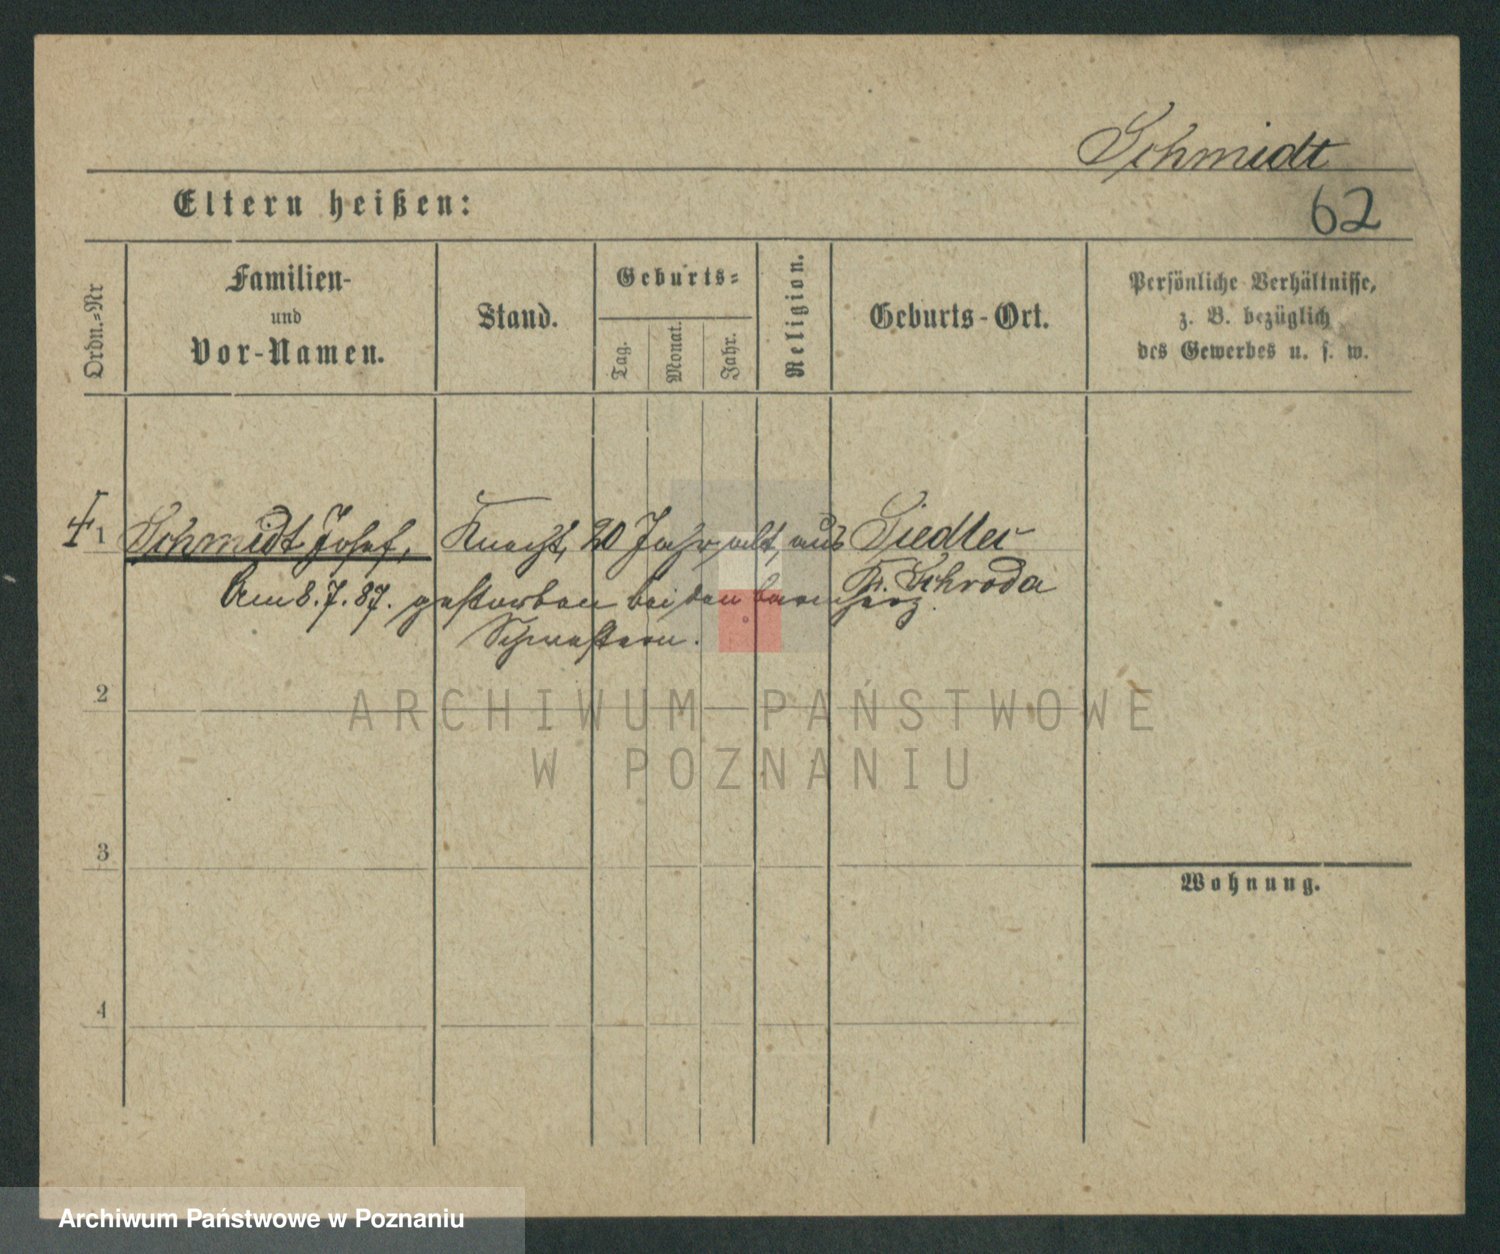 Schmidt
Eltern heißen:
62
Ordn.-Nr
Familien-
und
Vor-Namen.
Stand.
Geburts-
Tag.
Monat.
Jahr.
Religion.
Geburts-Ort.
Persönliche Verhältnisse,
z. B. bezüglich
des Gewerbes u. s. w.
1 Schmidt Josef, Knecht, 20 Jahr alt, aus Siedlec
Kr. Schroda
Am 8.7.87. gestorben bei den barmherz.
Schwestern.
2
ARCHIWUM PAŃSTWOWE
W POZNANIU
3
Wohnung.
4
Archiwum Państwowe w Poznaniu